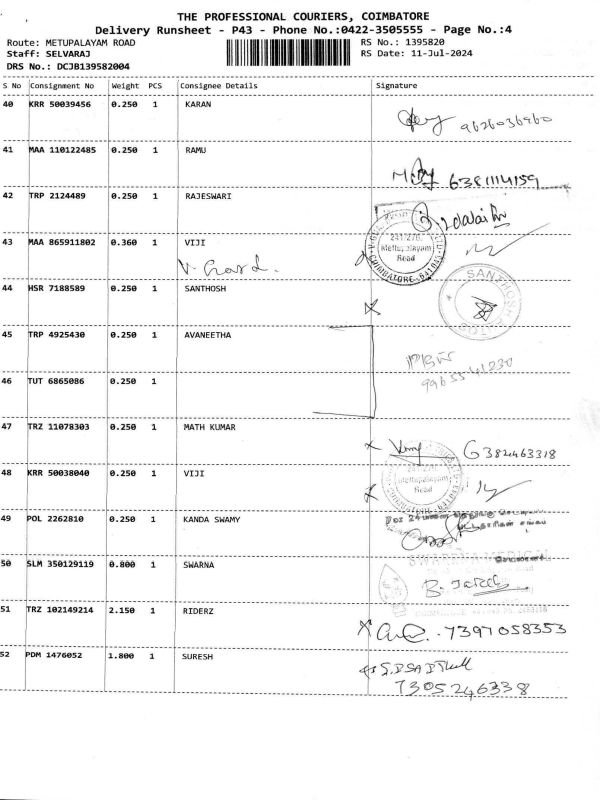 THE PROFESSIONAL COURIERS, COIMBATORE
Delivery Runsheet - P43 - Phone No.:0422-3505555 - Page No.:4
Route: METUPALAYAM ROAD RS No.: 1395820
Staff: SELVARAJ RS Date: 11-Jul-2024
DRS No.: DCJB139582004
S No Consignment No Weight PCS Consignee Details Signature
40 KRR 50039456 0.250 1 KARAN
9626036960
41 MAA 110122485 0.250 1 RAMU
6381114159
42 TRP 2124489 0.250 1 RAJESWARI
43 MAA 865911802 0.360 1 VIJI
241/270,
Mettupalayam
Road
COIMBATORE-641043
44 HSR 7188589 0.250 1 SANTHOSH
SANTHOSH
45 TRP 4925430 0.250 1 AVANEETHA
99655 41230
46 TUT 6865086 0.250 1
47 TRZ 11078303 0.250 1 MATH KUMAR
6382463318
48 KRR 50038040 0.250 1 VIJI
241/270,
Mettupalayam
Road
49 POL 2262810 0.250 1 KANDA SWAMY
50 SLM 350129119 0.800 1 SWARNA
51 TRZ 102149214 2.150 1 RIDERZ
7397058353
52 PDM 1476052 1.800 1 SURESH
7305246338